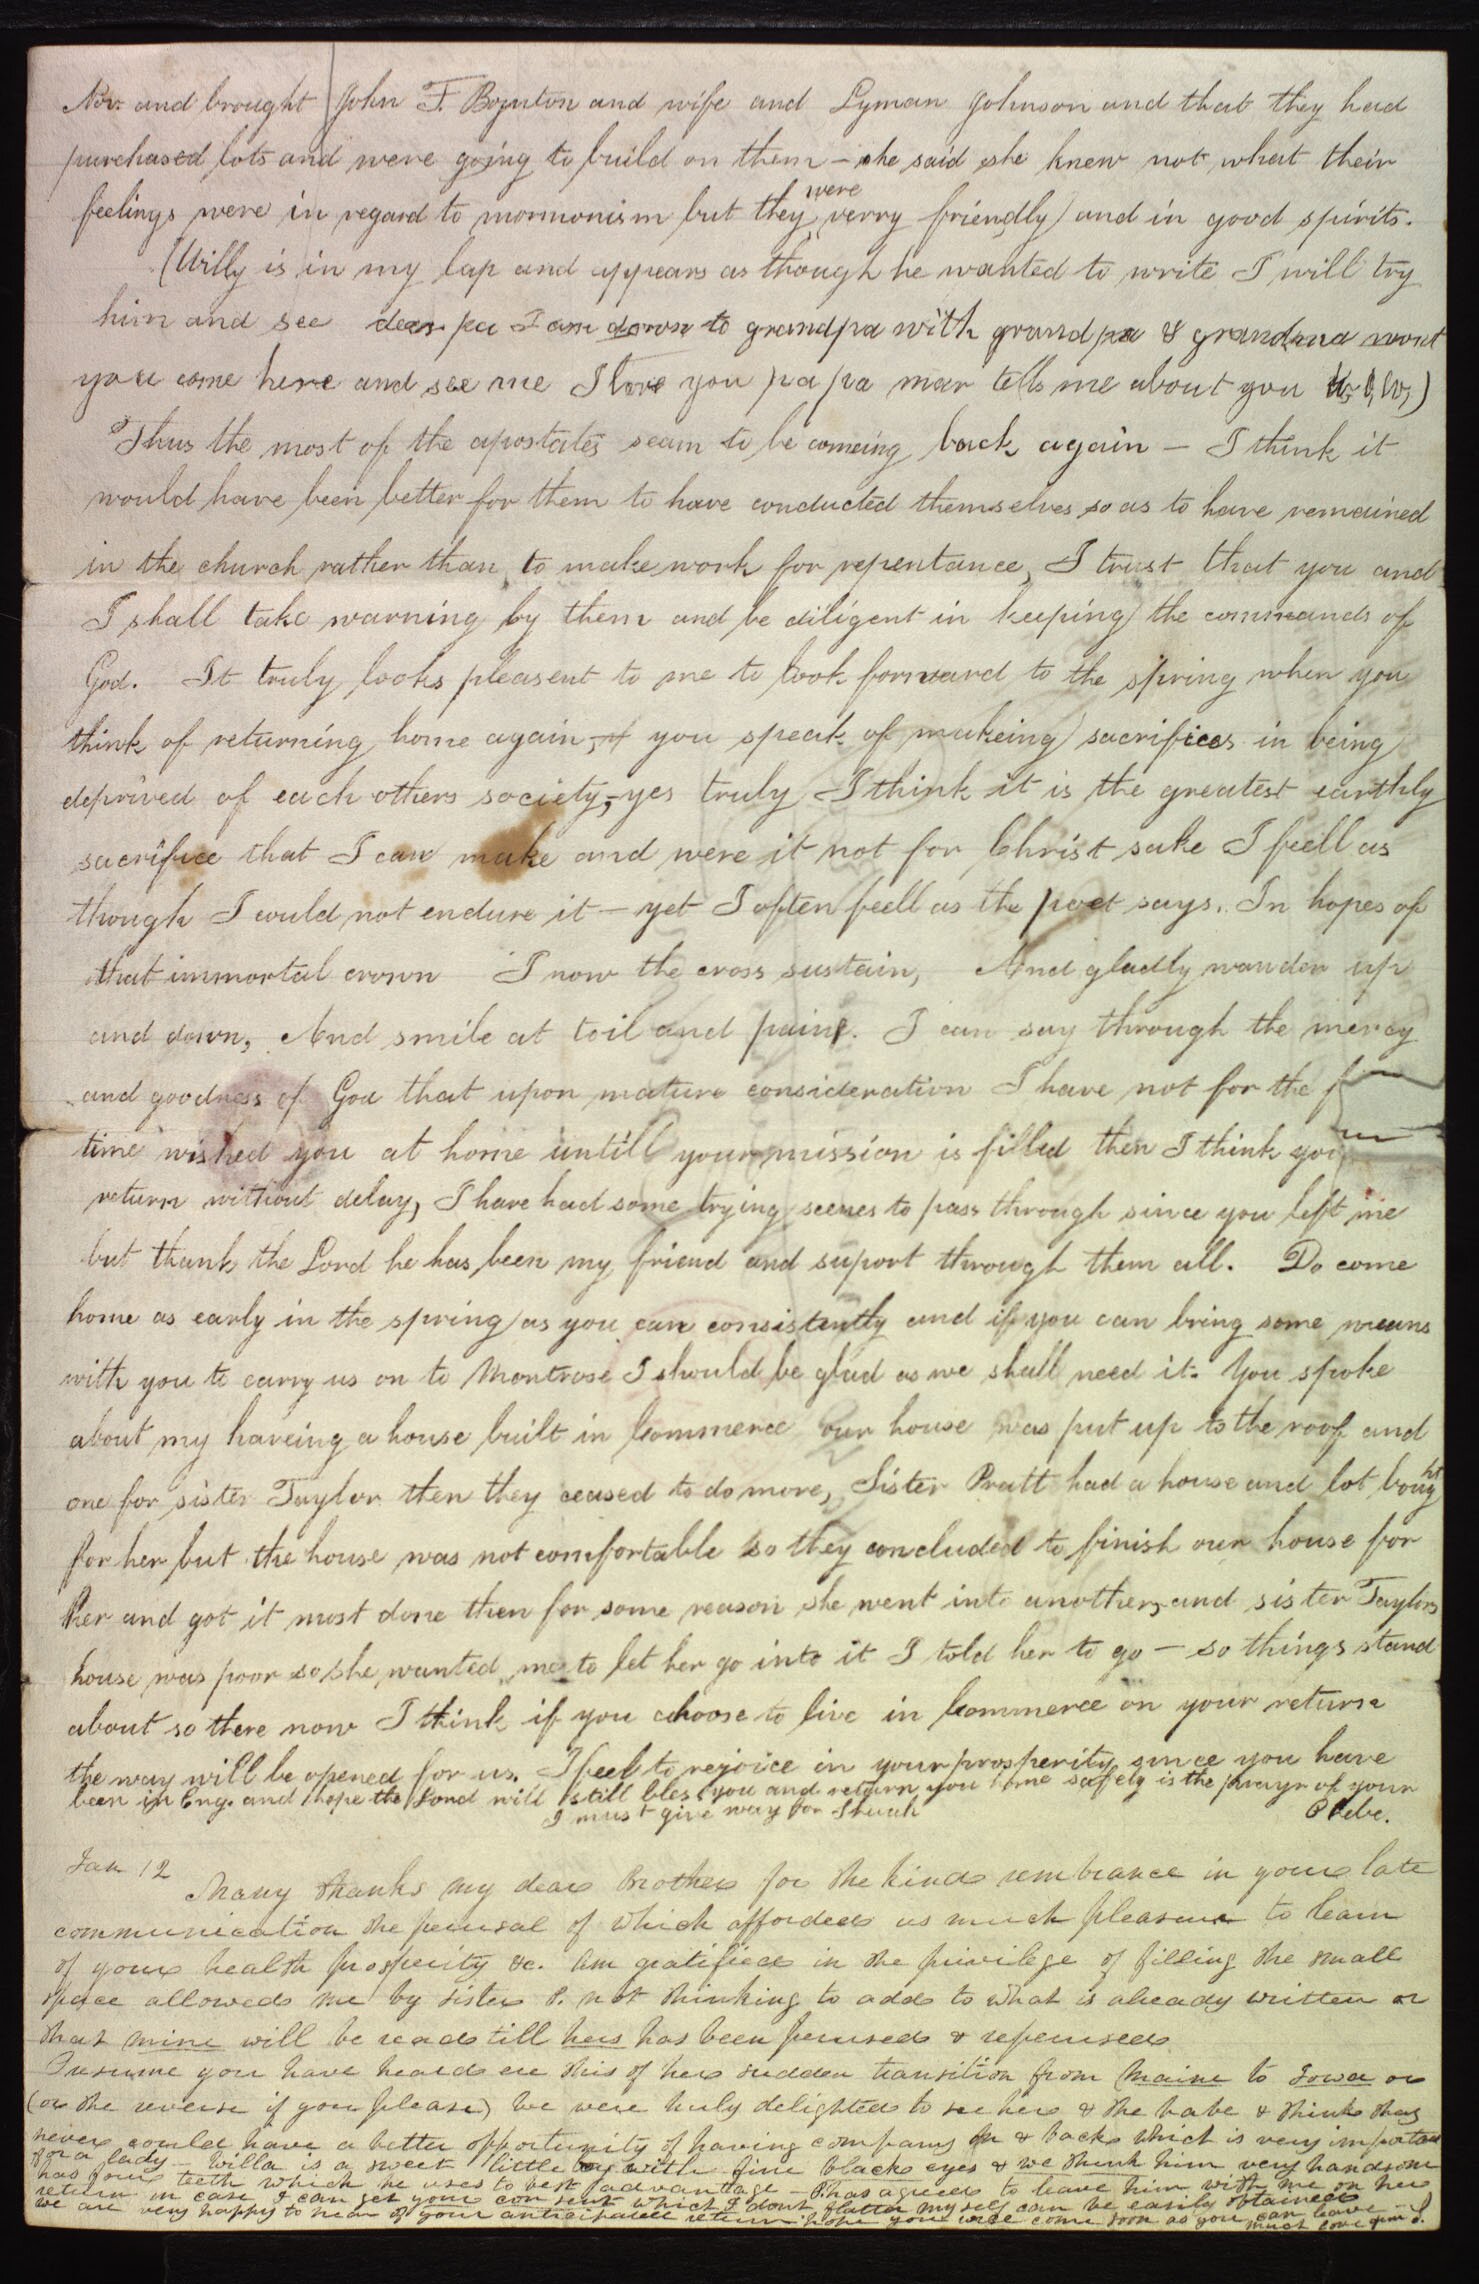 Nov. and brought John F. Boynton and wife and Lyman Johnson and that they had
purchased lots and were going to build on them – she said she knew not what their
feelings were in regard to mormonism but they were verry friendly and in good spirits.
(Willy is in my lap and appears as though he wanted to write I will try
him and see dear pa I am down to grandpa with grand pa & grandma wont
you come here and see me I love you pa pa mar tells me about you
Thus the most of the apostates seam to be comeing back again – I think it
would have been better for them to have conducted themselves so as to have remained
in the church rather than to make work for repentance, I trust that you and
I shall take warning by them and be diligent in keeping the commands of
God. It truly looks pleasent to me to look forward to the spring when you
think of returning home again, – you speak of makeing sacrifices in being
deprived of each others society, – yes truly I think it is the greatest earthly
sacrifice that I can make and were it not for Christ sake I feell as
though I could not endure it – yet I often feell as the poet says. In hopes of
that immortal crown I now the cross sustain, And gladly wander up
and down, And smile at toil and pain. I can say through the mercy
and goodness of God that upon mature consideration I have not for the
time wished you at home untill your mission is filled then I think you
return without delay, I have had some trying scenes to pass through since you left me
but thank the Lord he has been my friend and suport through them all. Do come
home as early in the spring as you can consistently and if you can bring some means
with you to carry us on to Montrose I should be glad as we shall need it. You spoke
about my haveing a house built in Commerce our house was put up to the roof and
one for sister Taylor then they ceased to do more, Sister Pratt had a house and lot bought
for her but the house was not comfortable so they concluded to finish our house for
her and got it most done then for some reason she went into another, and sister Taylors
house was poor so she wanted me to let her go into it I told her to go – so things stand
about so there now I think if you choose to live in Commerce on your return
the way will be opened for us. I feel to rejoice in your prosperity since you have
been in Eng. and hope the Lord will still bless you and return you home safely is the prayr of your
I must give way for Shuah Phebe.
Jan 12 Many thanks my dear Brother for the kind rembrance in your late
communication the perusal of which afforded us much pleasure to learn
of your health prosperity &c. Am gratified in the privilege of filling the small
space allowed me by sister P. not thinking to add to what is already written or
that mine will be read till hers has been perused & reperused
Presume you have heard ere this of her sudden transition from Maine to Iowa or
(or the reverse if you please) We were truly delighted to see her & the babe & think they
never could have a better opportunity of having company on & back which is very important
for a lady – Willa is a sweet little boy with fine black eyes & we think him very handsome
has four teeth which he uses to best advantage – P. has agreed to leave him with me on her
return in case I can get your consent which I dont flatter myself can be easily obtained
we are very happy to hear of your anticipated return hope you will come soon as you can leave –
much love from S.